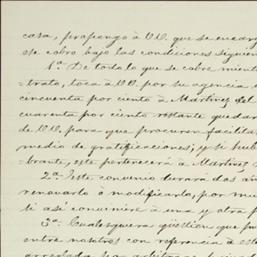 casa, propongo á UU. que se encar
se cobro bajo las condiciones siguien
1ª. De todo lo que se cobre mient
trato, toca á UU. por su agencia e
cincuenta por ciento á Martinez del
cuarenta por ciento restante quedar
de UU. para que procuren facilita
medio de gratificaciones; y si hub
brante, este pertenecerá á Martinez
2ª. Este convenio durará dos añ
renovarlo ó modificarlo, por mu
ti asi conviniere á una y otra p
3ª. Cualesquiera qüestion que pu
entre nosotros con referencia á este
arreglada por arbitros